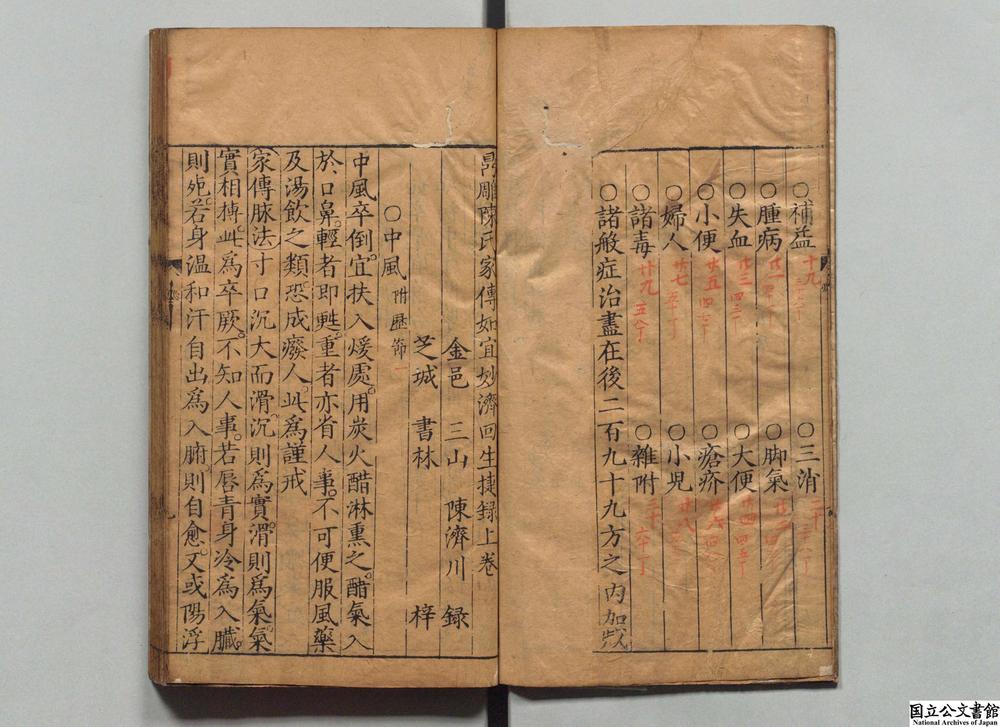 ○補益 十九 ○三消 二十
○腫病 廿一 ○脚氣 廿二
○失血 廿三 四三丁 ○大便 廿四 四五丁
○小便 廿五 四七丁 ○瘡疥 廿六
○婦人 廿七 五十丁 ○小兒 廿八
○諸毒 廿九 五八丁 ○雜附 三十 六十丁
○諸般症治盡在後二百九十九方之内加
鼎雕陳氏家傳如宜妙濟回生捷録上卷
金邑 三山 陳濟川 録
芝城 書林 梓
○中風 附歷節 一
中風卒倒宜扶入煖處用炭火醋淋熏之醋氣入
於口鼻輕者即甦重者亦省人事不可便服風藥
及湯飲之類恐成癈人此為謹戒
家傳脉法寸口沉大而滑沉則爲實滑則爲氣氣
實相搏此爲卒厥不知人事若唇青身冷爲入臟
則死若身溫和汗自出爲入腑則自愈又或陽浮
国立公文書館
National Archives of Japan